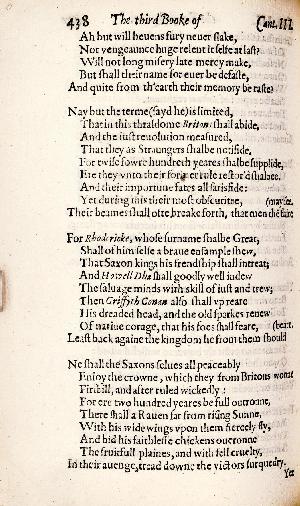 438 The third Booke of Cant. III.
Ah but will heuens fury neuer slake,
Nor vengeaunce huge relent it selfe at last?
Will not long misery late mercy make,
But shall their name for euer be defaste,
And quite from th'earth their memory be raste?
Nay but the terme (sayd he) is limited,
That in this thraldome Britons shall abide,
And the iust reuolution measured,
That they as Straungers shalbe notifide.
For twise fowre hundreth yeares shalbe supplide,
Ere they vnto their former rule restor'd shalbee.
And their importune fates all satisfide:
Yet during this their most obscuritee, (may see.
Their beames shall ofte breake forth, that men them faire
For Rhodoricke, whose surname shalbe Great,
Shall of him selfe a braue ensample shew,
That Saxon kings his frendship shall intreat;
And Howell Dha shall goodly well indew
The saluage minds with skill of iust and trew;
Then Griffyth Conan also shall vp reare
His dreaded head, and the old sparkes renew
Of natiue corage, that his foes shall feare, (beare.
Least back againe the kingdom he from them should
Ne shall the Saxons selues all peaceably
Enioy the crowne, which they from Britons wonne
First ill, and after ruled wickedly:
For ere two hundred yeares be full outronne,
There shall a Rauen far from rising Sunne,
With his wide wings vpon them fiercely fly,
And bid his faithlesse chickens ouerronne
The fruitfull plaines, and with fell cruelty,
In their auenge, tread downe the victors surquedry.
Yet